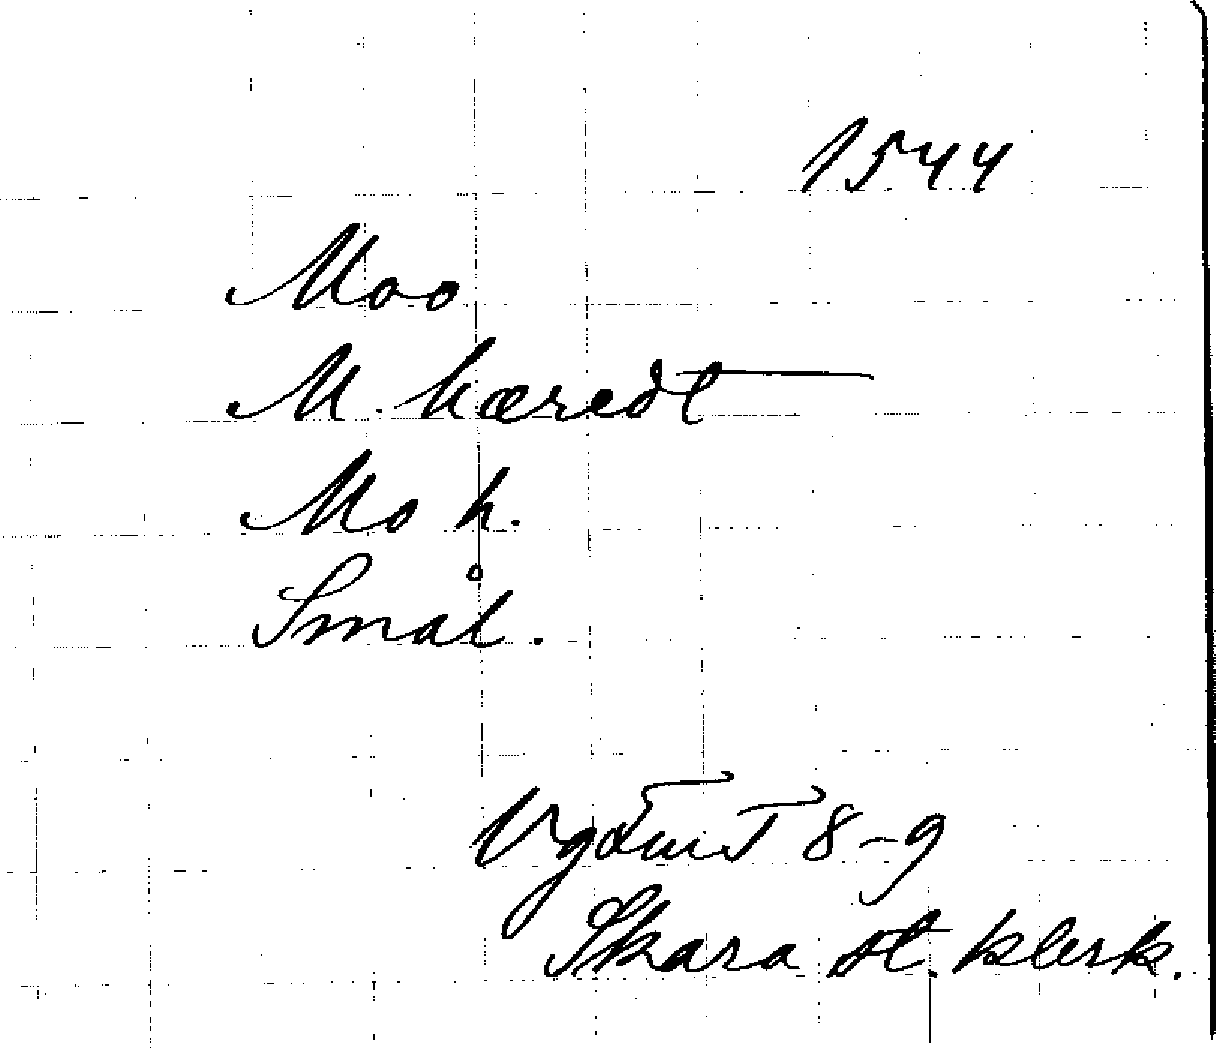 1544
Moo
M. hæredt
Mo h.
Smål.
VgFmT 8-9
Skara st. klerk.